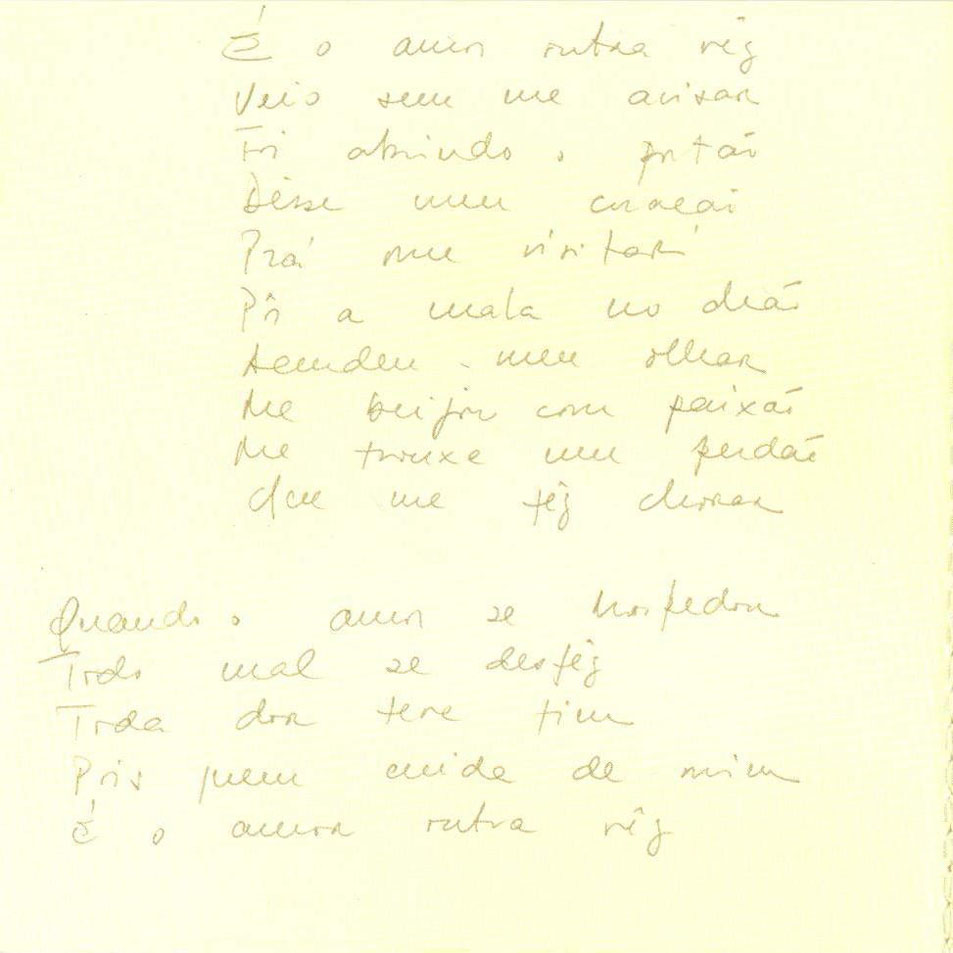 É o amor outra vêz
Veio sem me avisar
Foi abrindo o portão
Dêsse meu coração
Prá me visitar
Pôs a mala no chão
Acendeu o meu olhar
Me beijou com paixão
Me trouxe um perdão
Que me fêz chorar
Quando o amor se hospedou
Todo mal se desfêz
Toda dor teve fim
Pois quem cuida de mim
É o amor outra vêz